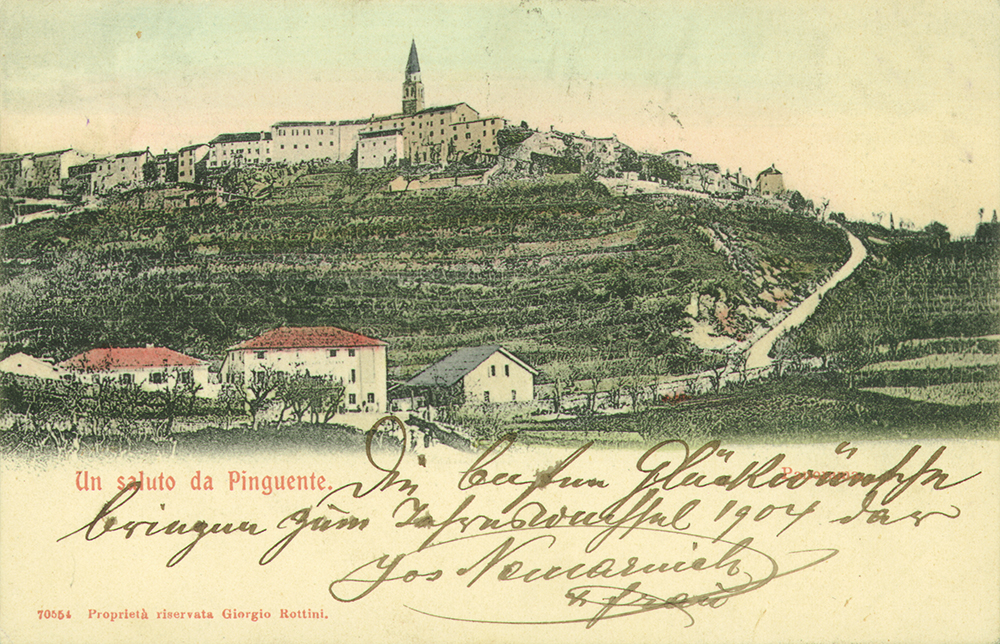 Un saluto da Pinguente.
Panorama
Die besten Glückwünsche
bringen zum Jahreswechsel 1904 dar
Jos Nemarnich
& Frau
70554 Proprietà riservata Giorgio Rottini.